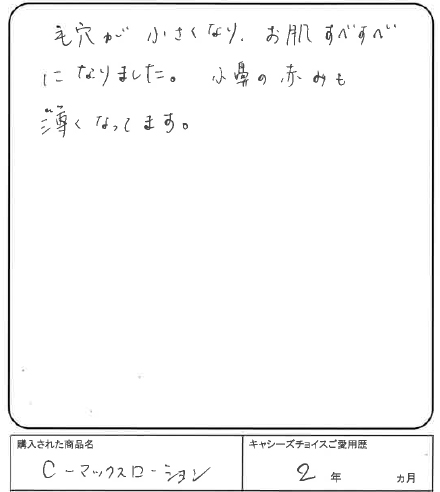 毛穴が小さくなり、お肌すべすべ
になりました。小鼻の赤みも
薄くなってます。
購入された商品名
キャシーズチョイスご愛用歴
C-マックスローション
2年 ヵ月